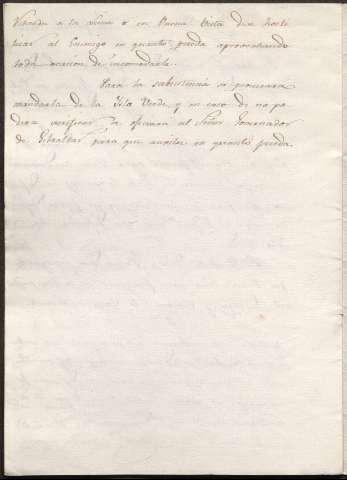 Venido a la viva o en Buena Vista dex hosti
lizar al Enemigo en quanto pueda aprovechando
toda ocasion de incomodarle.
Para la subsistencia se procurara
mandarla de la Isla Verde, y en caso de no po
derse verificar se oficiara al Señor Governador
de Gibraltar para que auxilie en quanto pueda.